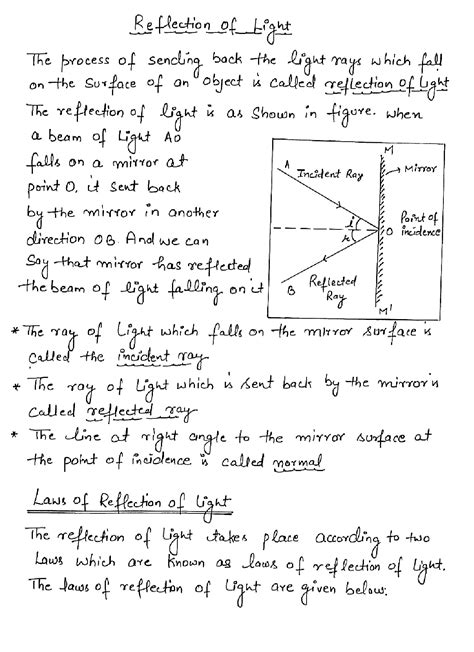 Reflection of Light
The process of sending back the light rays which fall
on the surface of an object is called reflection of light
The reflection of light is as shown in figure. when
a beam of Light AO
falls on a mirror at
point O, it sent back
by the mirror in another
direction OB. And we can
Say that mirror has reflected
the beam of light falling on it
M
A
Incident Ray
Mirror
i
r
O
Point of
incidence
B
Reflected
Ray
M'
* The ray of Light which falls on the mirror surface is
called the incident ray
* The ray of Light which is sent back by the mirror is
called reflected ray
* The line at right angle to the mirror surface at
the point of incidence is called normal
Laws of Reflection of Light
The reflection of Light takes place according to two
Laws which are known as laws of reflection of Light.
The laws of reflection of Light are given below: